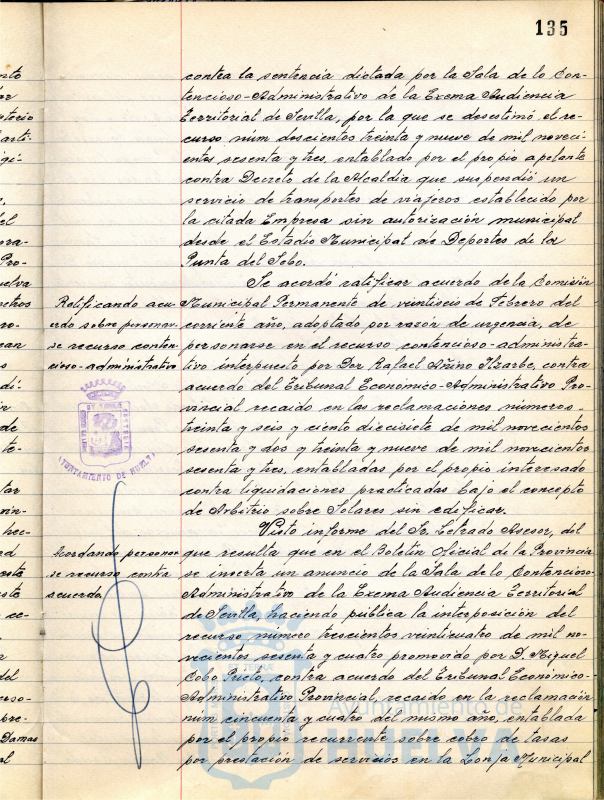 135
contra la sentencia dictada por la Sala de lo Con-
tencioso-Administrativo de la Excma Audiencia
Territorial de Sevilla, por la que se desestimó el re-
curso núm doscientos treinta y nueve de mil noveci-
entos sesenta y tres, entablado por el propio apelante
contra Decreto de la Alcaldía que suspendió un
servicio de transportes de viajeros establecido por
la citada Empresa sin autorización municipal
desde el Estadio Municipal de Deportes de la
Punta del Sebo.
Se acordó ratificar acuerdo de la Comisión
Municipal Permanente de veintiseis de Febrero del
corriente año, adoptado por razón de urgencia, de
personarse en el recurso contencioso-administra-
tivo interpuesto por Don Rafael contra
acuerdo del Tribunal Económico-Administrativo Pro-
vincial recaido en las reclamaciones números
treinta y seis y ciento diecisiete de mil novecientos
sesenta y dos y treinta y nueve de mil novecientos
sesenta y tres, entabladas por el propio interesado
contra liquidaciones practicadas bajo el concepto
de Arbitrio sobre Solares sin edificar.
Visto informe del Sr. Letrado Asesor, del
que resulta que en el Boletín Oficial de la Provincia
se inserta un anuncio de la Sala de lo Contencioso-
Administrativo de la Excma Audiencia Territorial
de Sevilla, haciendo pública la interposición del
recurso número trescientos veinticuatro de mil no-
vecientos sesenta y cuatro promovido por D. Miguel
Cobo Prieto, contra acuerdo del Tribunal Económico-
Administrativo Provincial, recaido en la reclamación
núm cincuenta y cuatro del mismo año, entablada
por el propio recurrente sobre cobro de tasas
por prestación de servicios en la Lonja Municipal
Ratificando acu-
erdo sobre personar-
se recurso conten-
cioso-administrativo
AYUNTAMIENTO DE HUELVA
Acordando personar
se recurso contra
acuerdo
Ayuntamiento de
HUELVA